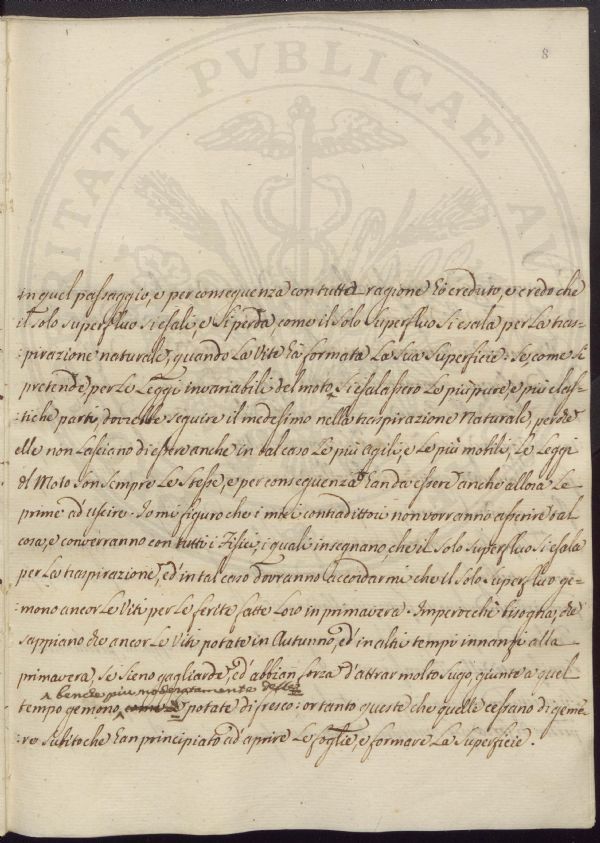 8
in quel passaggio, e per conseguenza con tutta ragione hò creduto, e credo che
il solo superfluo si esali, e si perda, come il solo superfluo si esala per la tras-
:spirazione naturale, quando la Vite hà formata la sua superficie. Se, come si
pretende, per le Leggi invariabili del moto, si esalassero le più pure, e più elas-
:tiche parti, dovrebbe seguire il medesimo nella traspirazione Naturale, perche
elle non lasciano di essere anche in tal caso le più agili, e le più mobili; Le Leggi
del Moto son sempre le stesse, e per conseguenza han da essere anche allora le
prime ad uscire. Io mi figuro che i miei contradittori non vorranno asserire tal
cosa, e converranno con tutti i Fisici, i quali insegnano, che il solo superfluo si esala
per la traspirazione, ed in tal caso dovranno accordarmi che il solo superfluo ge-
mono ancor le Viti per le ferite fatte loro in primavera. Imperocchè bisogna, che
sappiano che ancor le Viti potate in Autunno, ed in altri tempi innanzi alla
primavera, se sieno gagliarde, ed abbian forza d'attrar molto sugo, giunte a quel
benche più moderatamente delle
tempo gemono, potate di fresco: or tanto queste che quelle cessano di geme-
:re subito che han principiato ad aprire le foglie, e formare la superficie.
VRITATI PVBLICAE AV